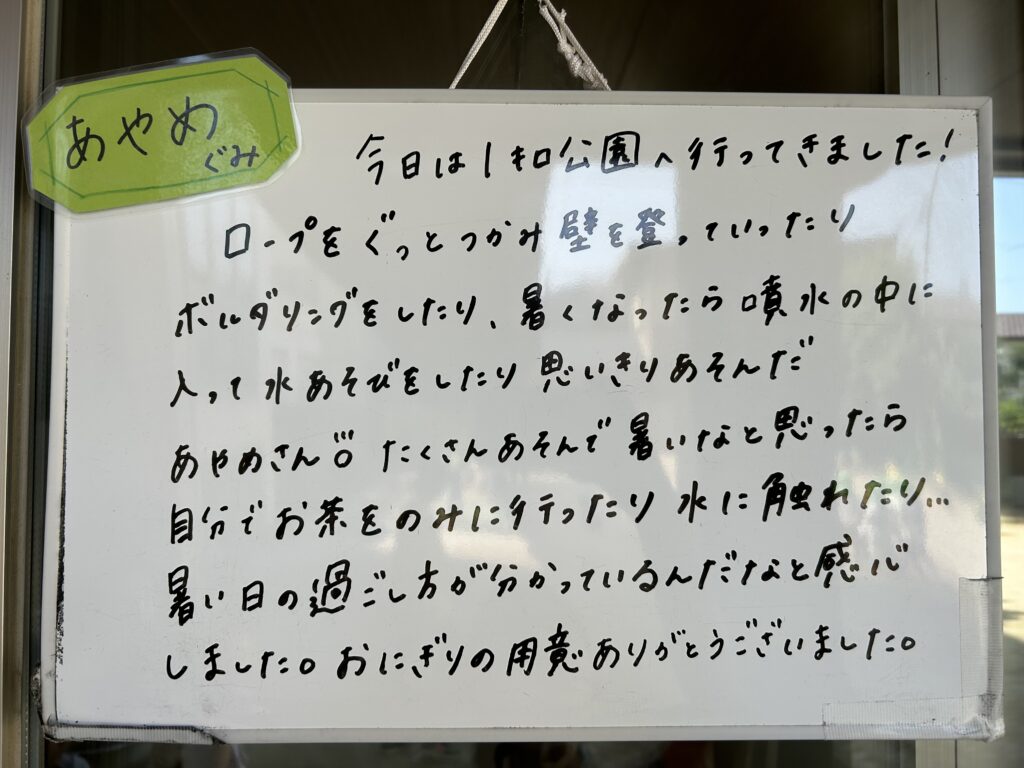 あやめ
ぐみ
今日は1キロ公園へ行ってきました!
ロープをぐっとつかみ壁を登っていったり
ボルダリングをしたり、暑くなったら噴水の中に
入って水あそびをしたり思いきりあそんだ
あやめさん!!。たくさんあそんで暑いなと思ったら
自分でお茶をのみに行ったり水に触れたり…
暑い日の過ごし方が分かっているんだなと感心
しました。おにぎりの用意ありがとうございました。